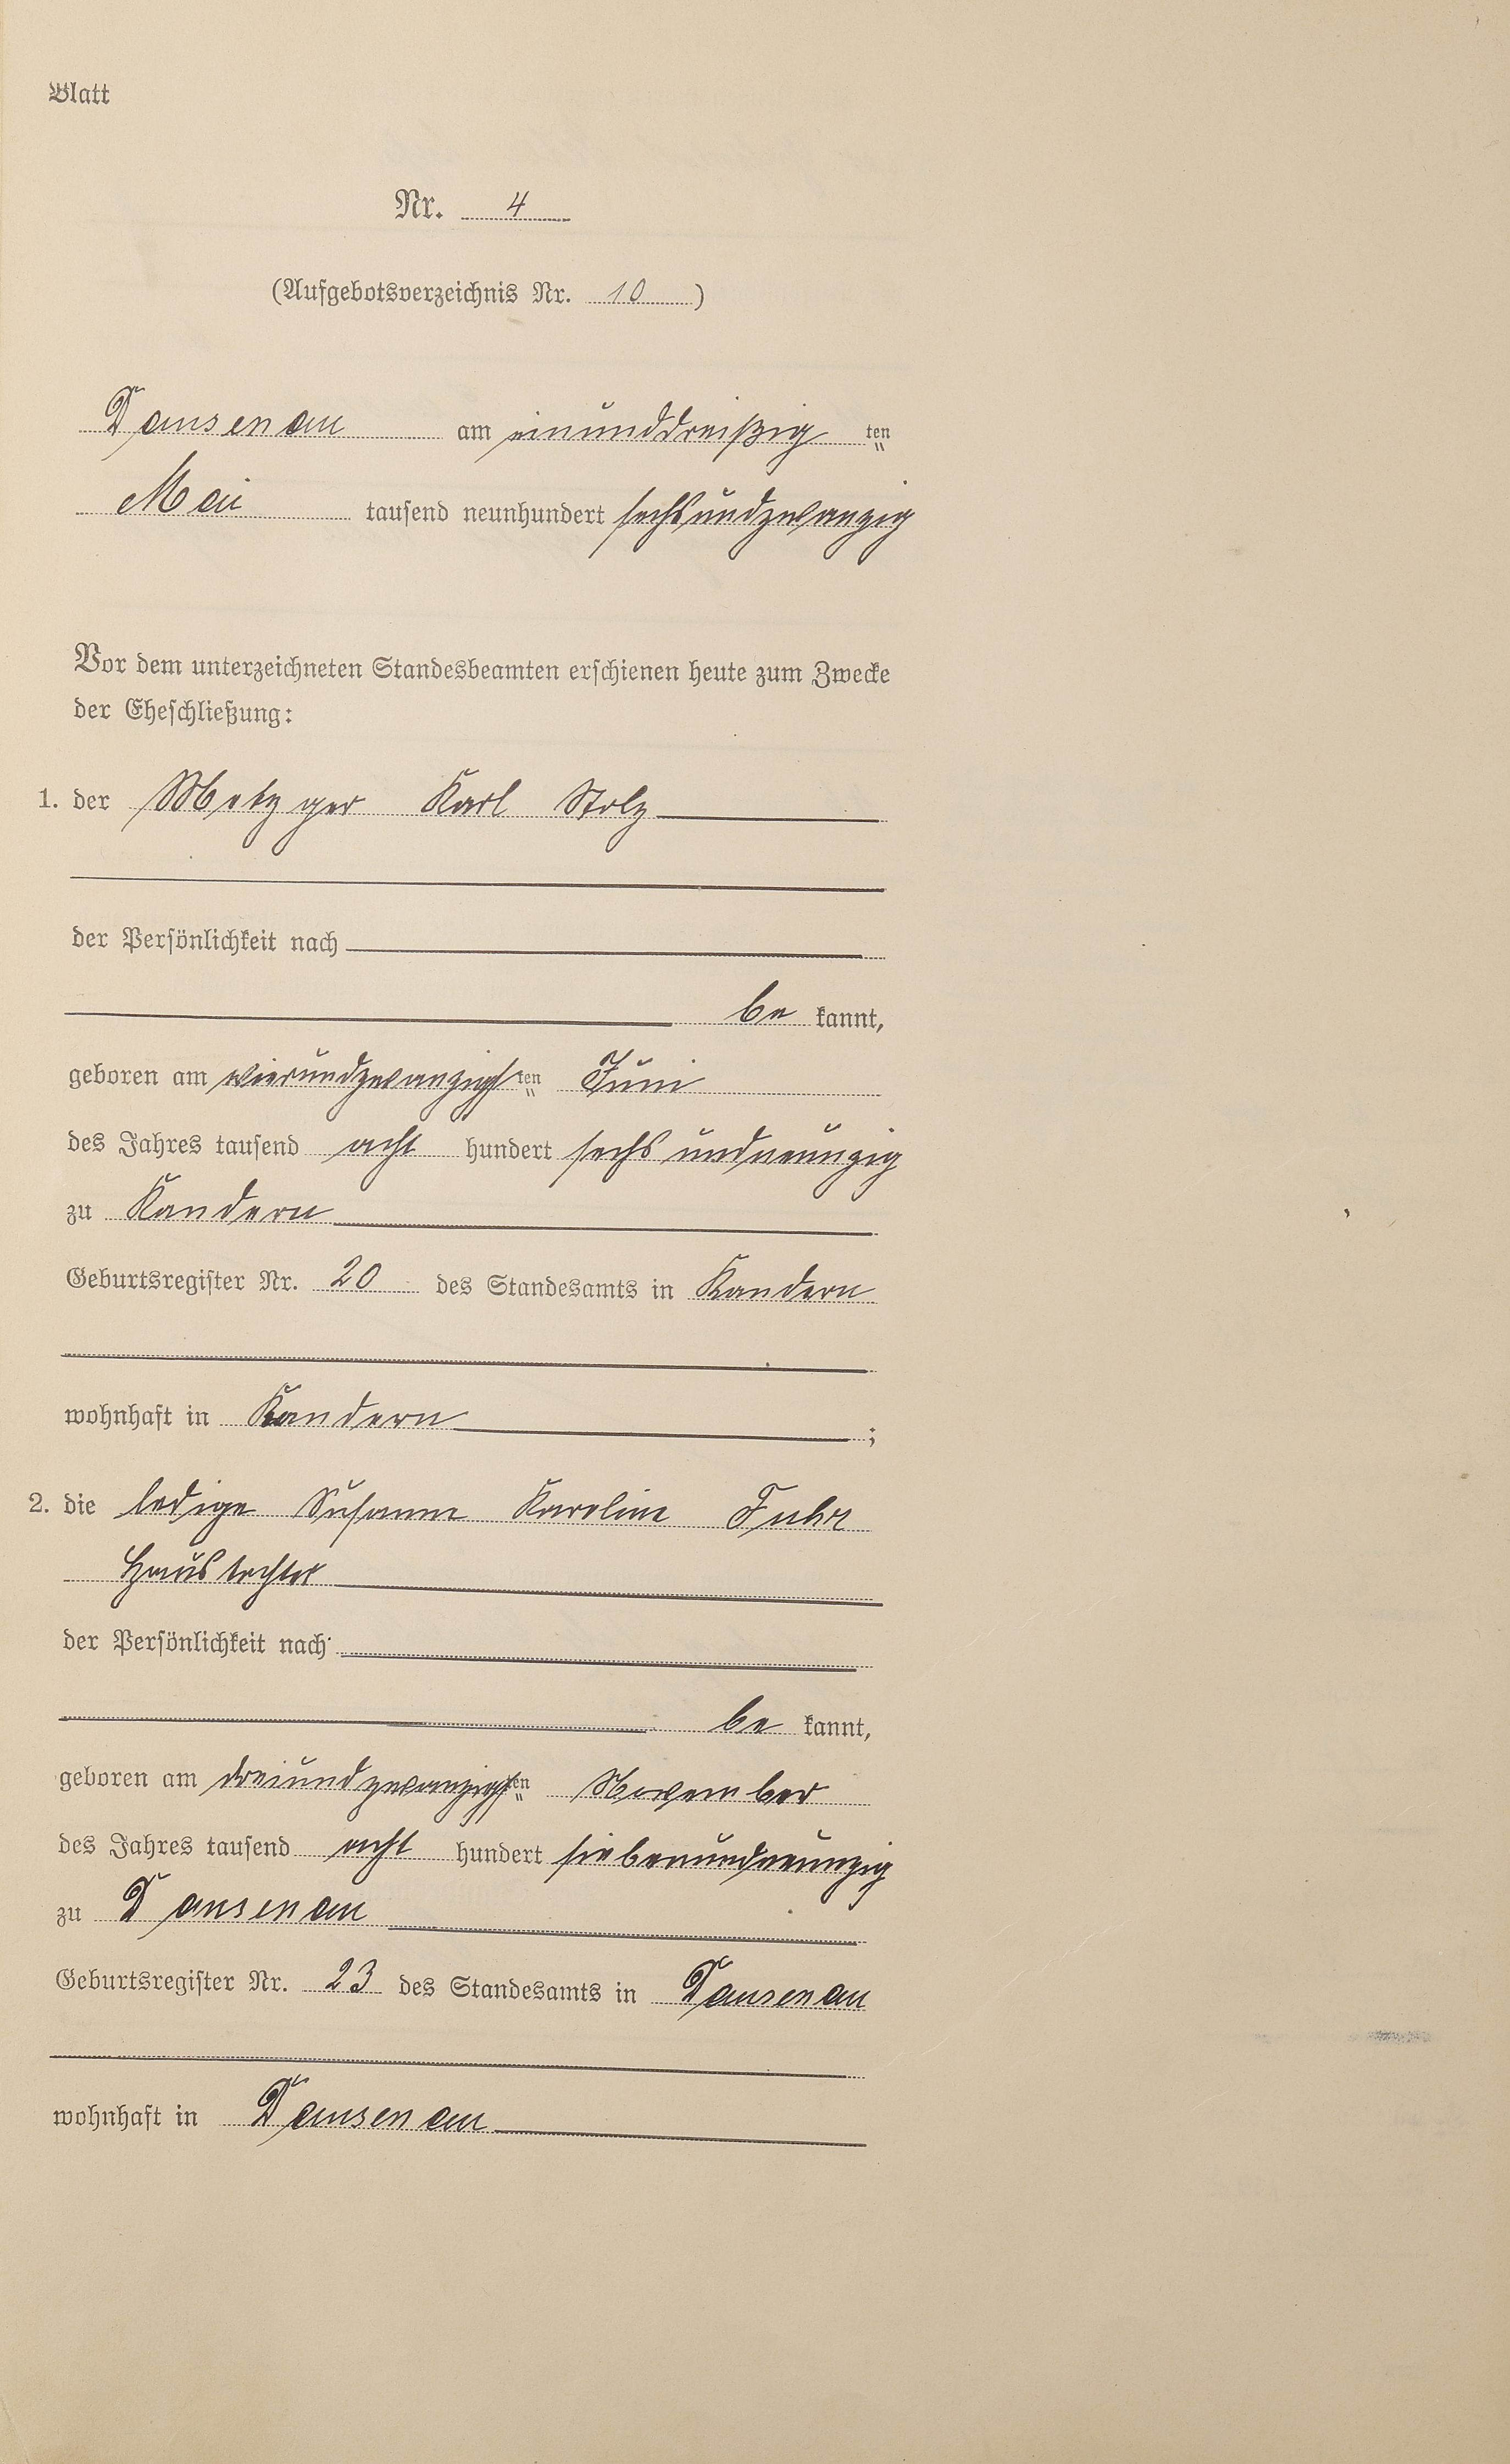 Blatt
Nr. 4
(Aufgebotsverzeichnis Nr. 10)
Dausenau am einunddreißig ten
Mai tausend neunhundert sechsundzwanzig
Vor dem unterzeichneten Standesbeamten erschienen heute zum Zwecke
der Eheschließung:
1. der Metzger Karl Stolz
der Persönlichkeit nach
be kannt,
geboren am vierundzwanzigsten Juni
des Jahres tausend acht hundert sechsundneunzig
zu Kandern
Geburtsregister Nr. 20 des Standesamts in Kandern
wohnhaft in Kandern ;
2. die ledige Susanne Karoline Fuhr
Haustochter
der Persönlichkeit nach
be kannt,
geboren am dreiundzwanzigsten November
des Jahres tausend acht hundert siebenundneunzig
zu Dausenau
Geburtsregister Nr. 23 des Standesamts in Dausenau
wohnhaft in Dausenau